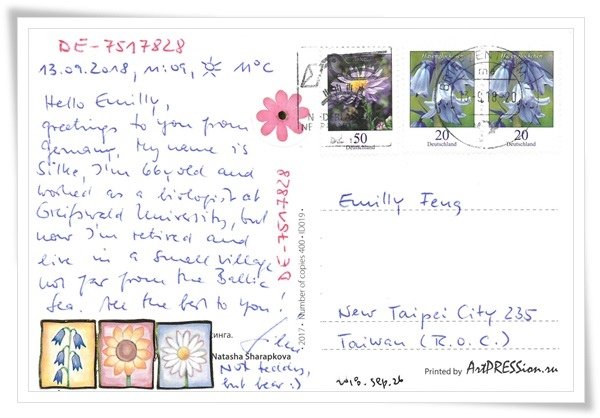 DE-7517828
13.09.2018, 11:09, 11°C
Hello Emilly,
greetings to you from
Germany. My name is
Silke, I'm 66y old and
worked as a biologist at
Greifswald University, but
now I'm retired and
live in a small village
not far from the Baltic
Sea. All the best to you!
Silke
Natasha Sharapkova
Not teddy,
but bear :)
DE-7517828
2017 • Number of copies 400 • ID019 •
50
Deutschland
20
Deutschland
20
Deutschland
Emilly Feng
New Taipei City 235
Taiwan (R.O.C.)
2018. Sep. 26
Printed by ArtPRESSion.ru